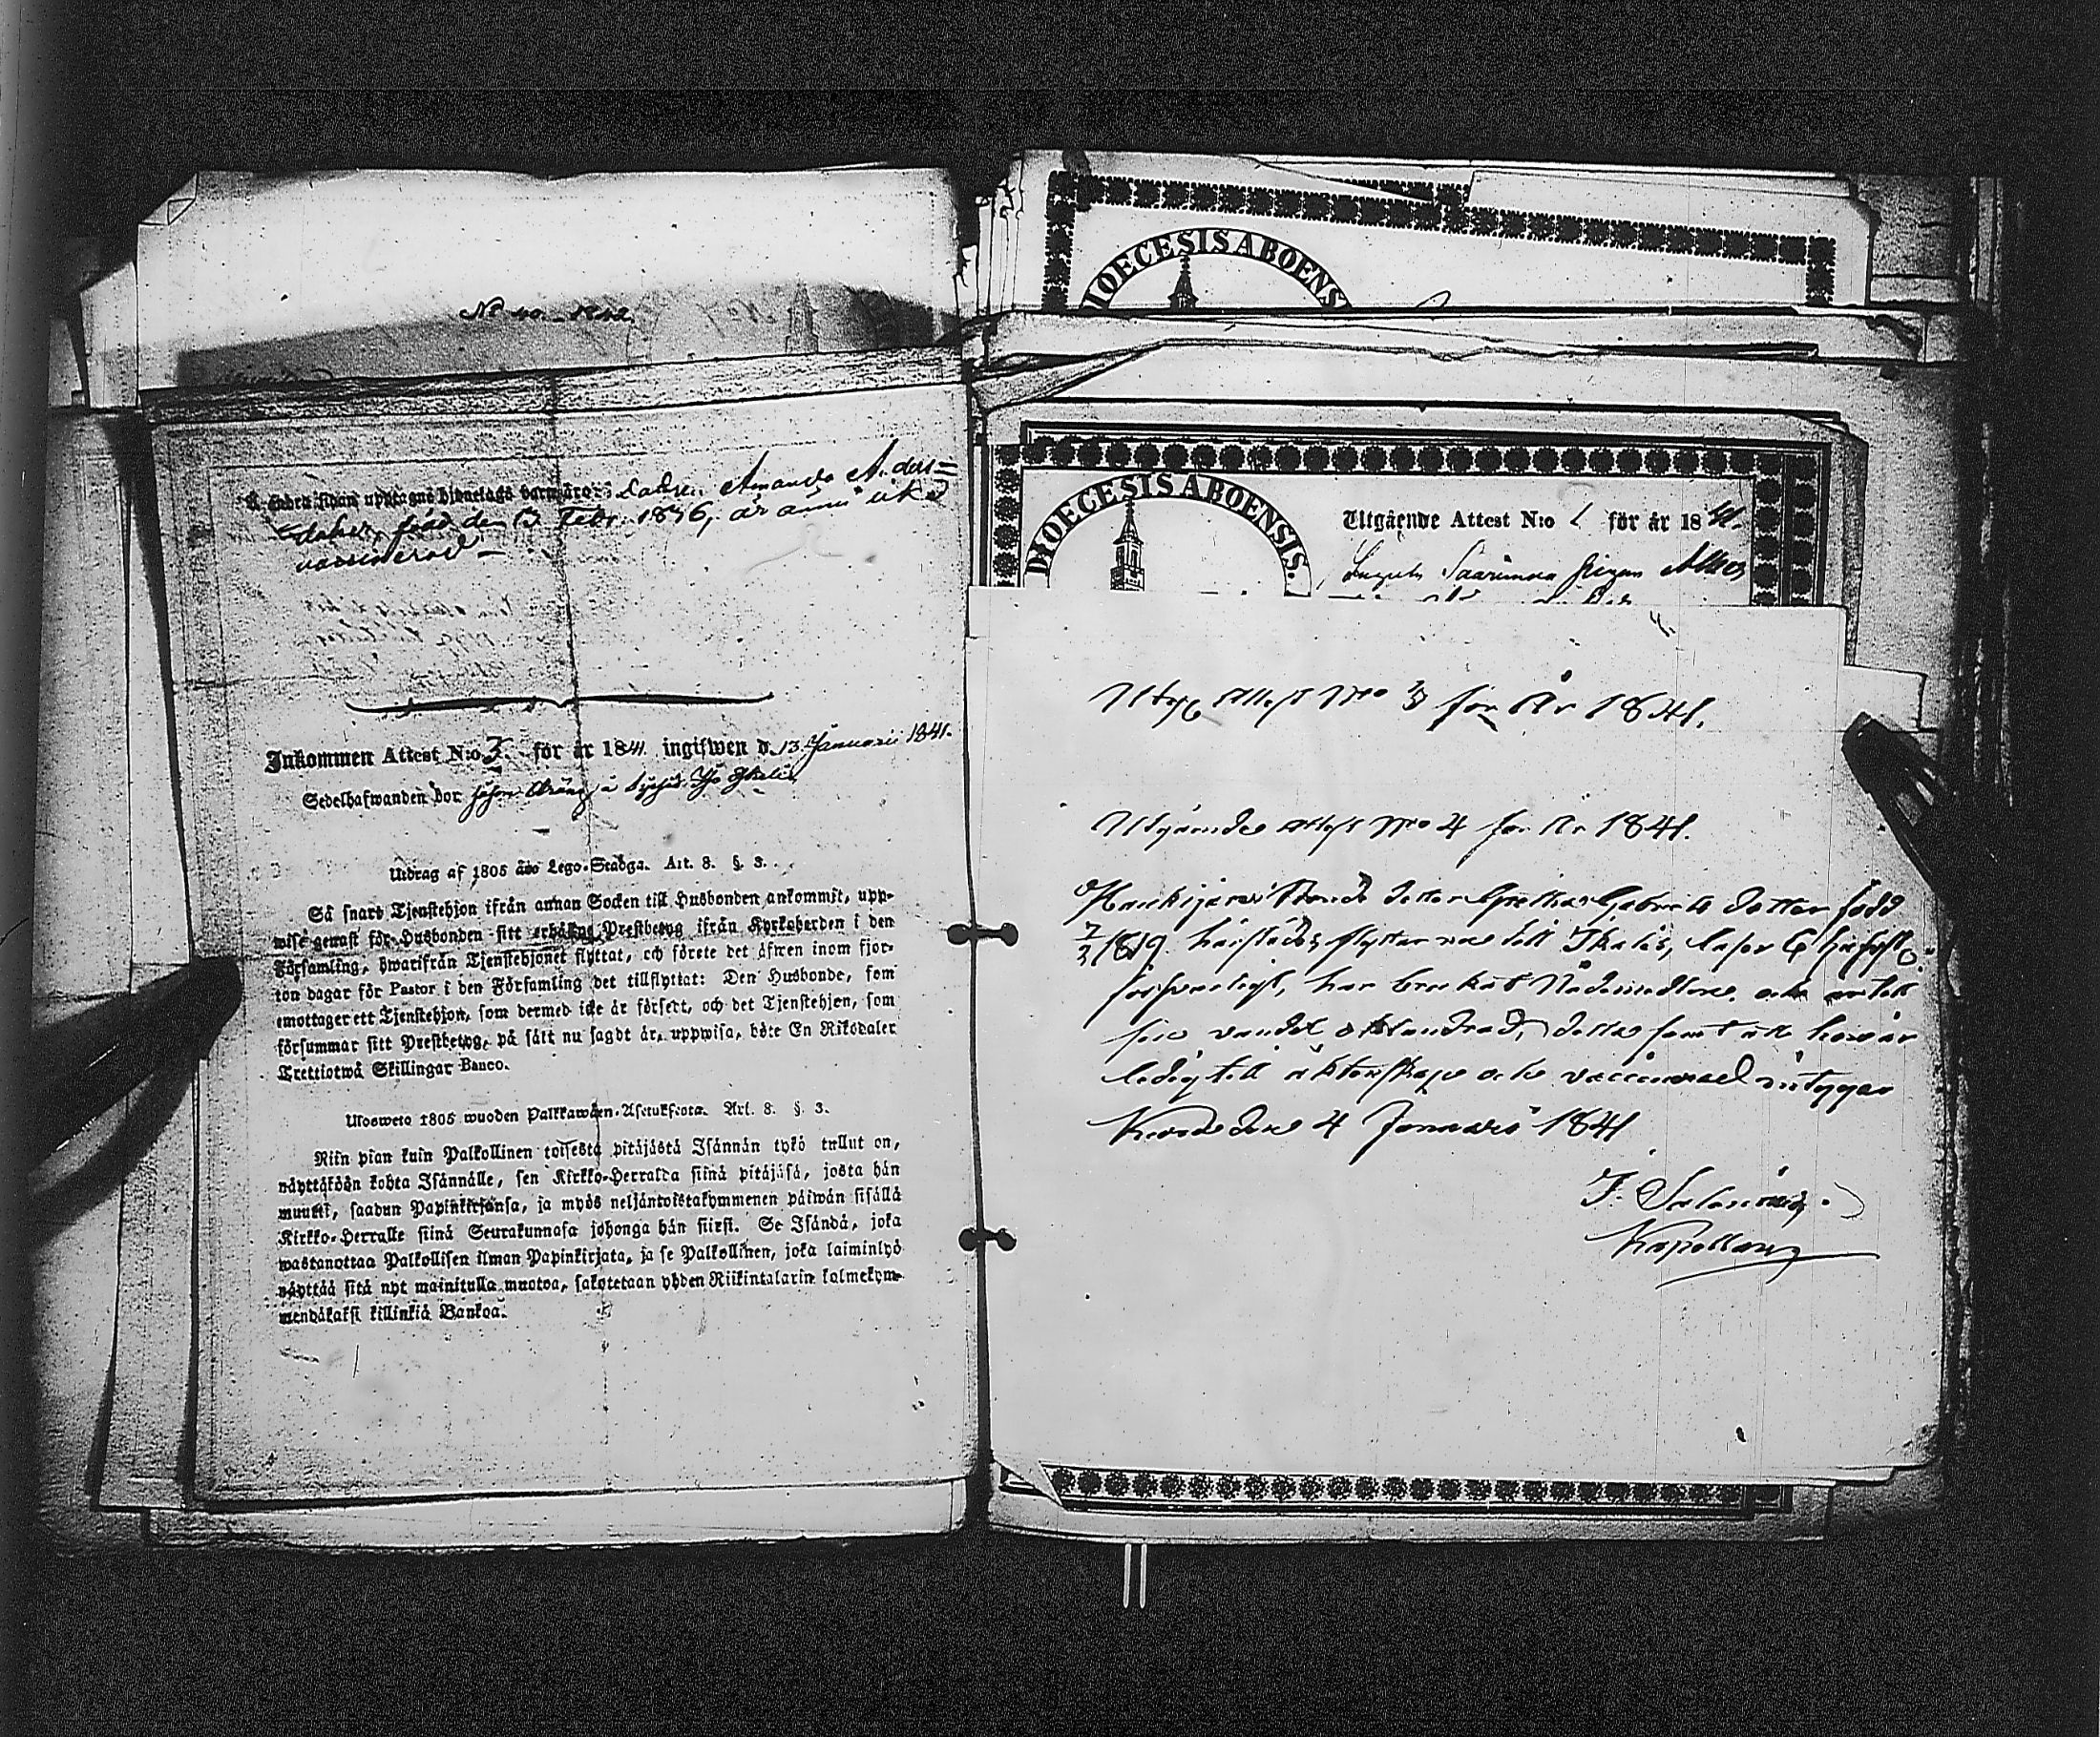 No 40. 1842
födde äro: Dottren Amanda Anders=
dotter, född den 13 Febr. 1836, är ännu icke
vaccinerad –
Inkommen Attest N:o 3. för år 1841. ingifwen d. 13 Januarii 1841.
Sedelhafwanden bor
Utdrag af 1805 års Lego-Stadga. Art. 8. §. 3.
Så snart Tjenstehjon ifrån annan Socken till Husbonden ankommit, upp-
wise genast för Husbonden sitt erhållne Prestbetyg ifrån Kyrkoherden i den
Församling, hwarifrån Tjenstehjonet flyttat, och förete det äfwen inom fjor-
ton dagar för Pastor i den Församling det tillflyttat: Den Husbonde, som
emottager ett Tjenstehjon, som dermed icke är försedt, och det Tjenstehjon, som
försummar sitt Prestbetyg, på sätt nu sagdt är, uppwisa, böte En Riksdaler
Trettiotwå Skillingar Banco.
Ulosweto 1805 wuoden Palkkawäen-Asetuksesta. Art. 8. §. 3.
Niin pian kuin Palkollinen toisesta pitäjästä Isännän tykö tullut on,
näyttäköön kohta Isännälle, sen Kirkko-Herralta siinä pitäjäsä, josta hän
muutti, saadun Papinkirjansa, ja myös neljäntoistakymmenen päiwän sisällä
Kirkko-Herralle siinä Seurakunnasa johonga hän siirsi. Se Isändä, joka
wastanottaa Palkollisen ilman Papinkirjata, ja se Palkollinen, joka laiminlyö
näyttää sitä nyt mainitulla muotoa, sakotetaan yhden Riikintalarin kolmekym-
mendäkaksi killinkiä Bankoa.
DIOECESIS ABOENS
DIOECESIS ABOENSIS.
Utgående Attest N:o för år 1841.
Saarimaa Pigan
Utg. Attest No 3 för År 1841.
Utgående Attest No 4 för År 1841.
Bonde dotter Gretha Gabriels dotter född
1819 härstädes, flyttar nu till Ikalis, läser
försvarligt, har brukat Nådemedlen och
sin vandel oklandrad, detta samt att hon är
ledig till äktenskap och vaccinerad intygar
den 4 Januari 1841
F. Salonius
Kapellan